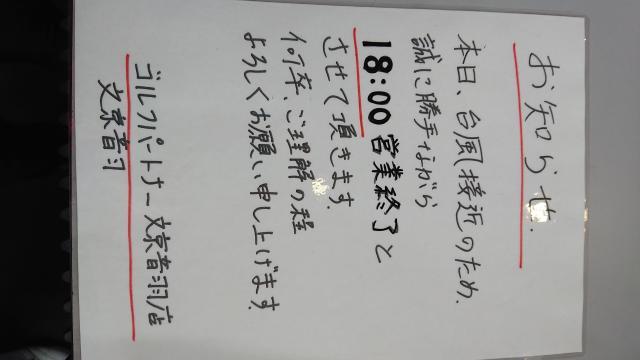 お知らせ.
本日、台風接近のため、
誠に勝手ながら
18:00 営業終了と
させて頂きます.
何卒、ご理解の程
よろしくお願い申し上げます.
ゴルフパートナー文京音羽店
文京音羽